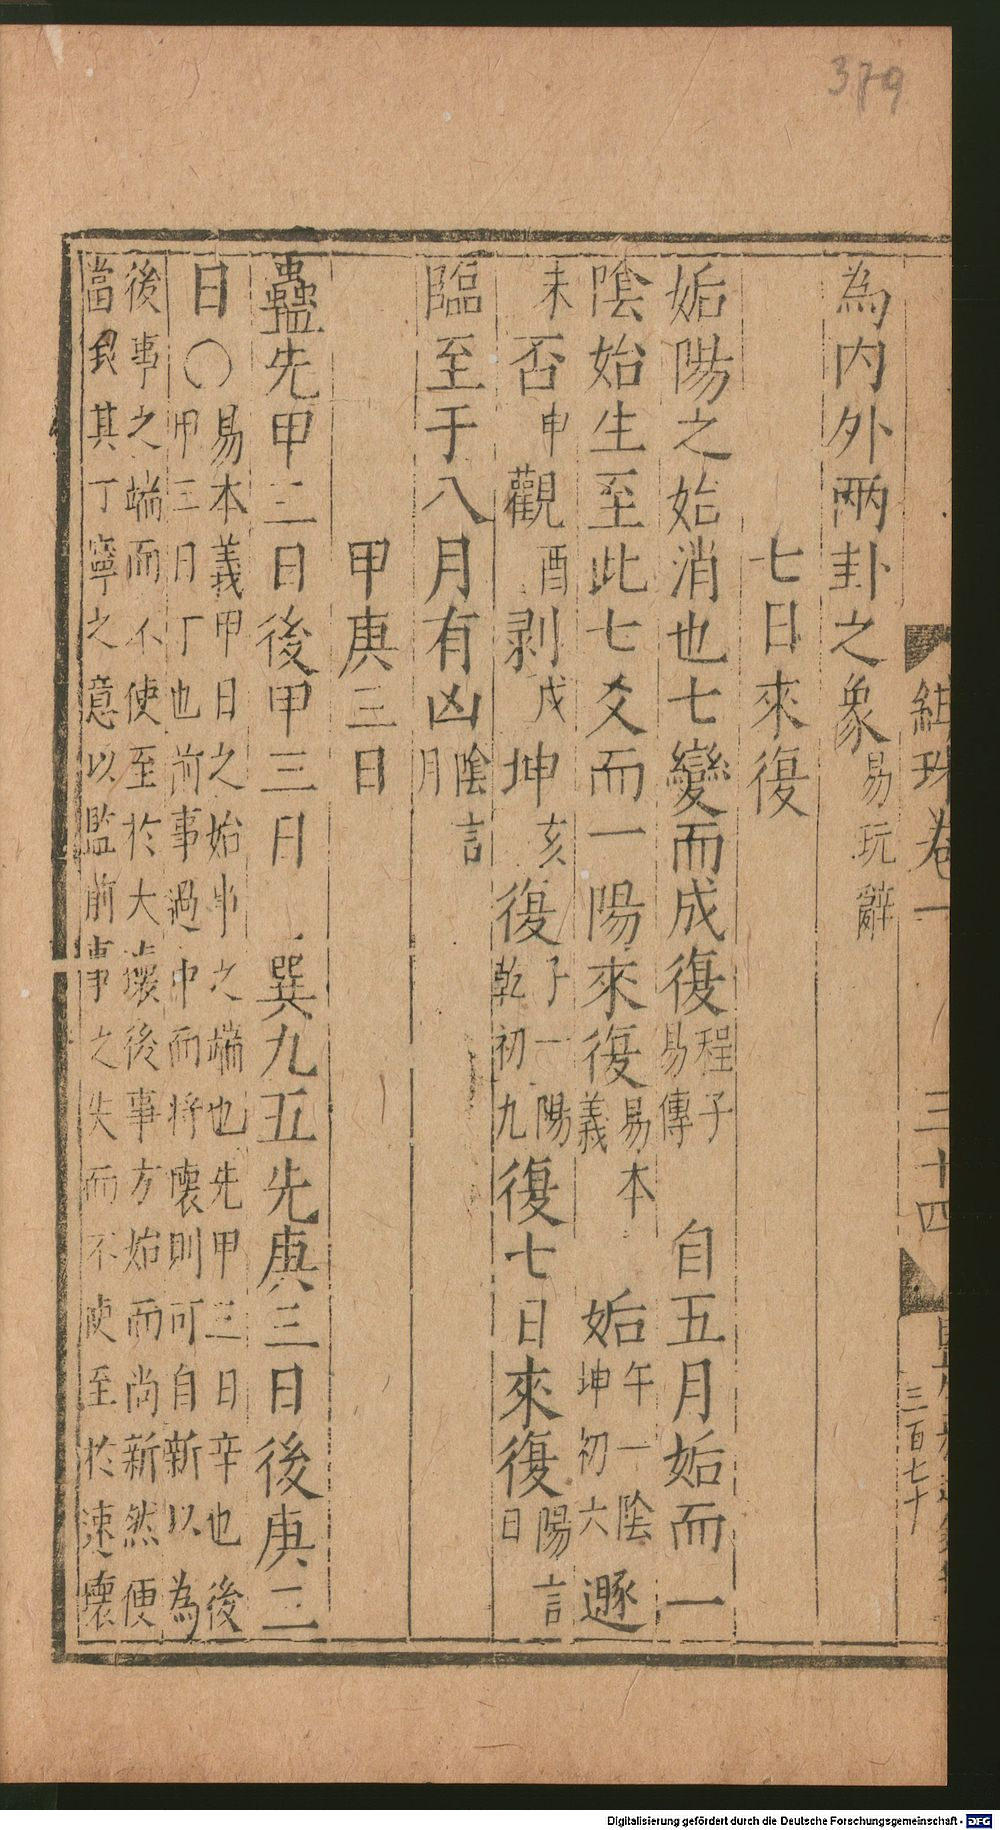 379
緝珠卷一 三十四
三百七十
為內外兩卦之象易玩辭
七日來復
姤陽之始消也七變而成復程子易傳 自五月姤而一
陰始生至此七爻而一陽來復易本義 姤午一陰坤初六遯
未否申觀酉剥戌坤亥復子一陽乾初九復七日來復陽言日
臨至于八月有凶陰言月
甲庚三日
蠱先甲三日後甲三日 巽九五先庚三日後庚三
日○易本義甲日之始事之端也先甲三日辛也後
甲三日丁也前事過中而将壞則可自新以為
後事之端而不使至於大壞後事方始而尚新然便
當致其丁寧之意以監前事之失而不使至於速壞
Digitalisierung gefördert durch die Deutsche Forschungsgemeinschaft - DFG